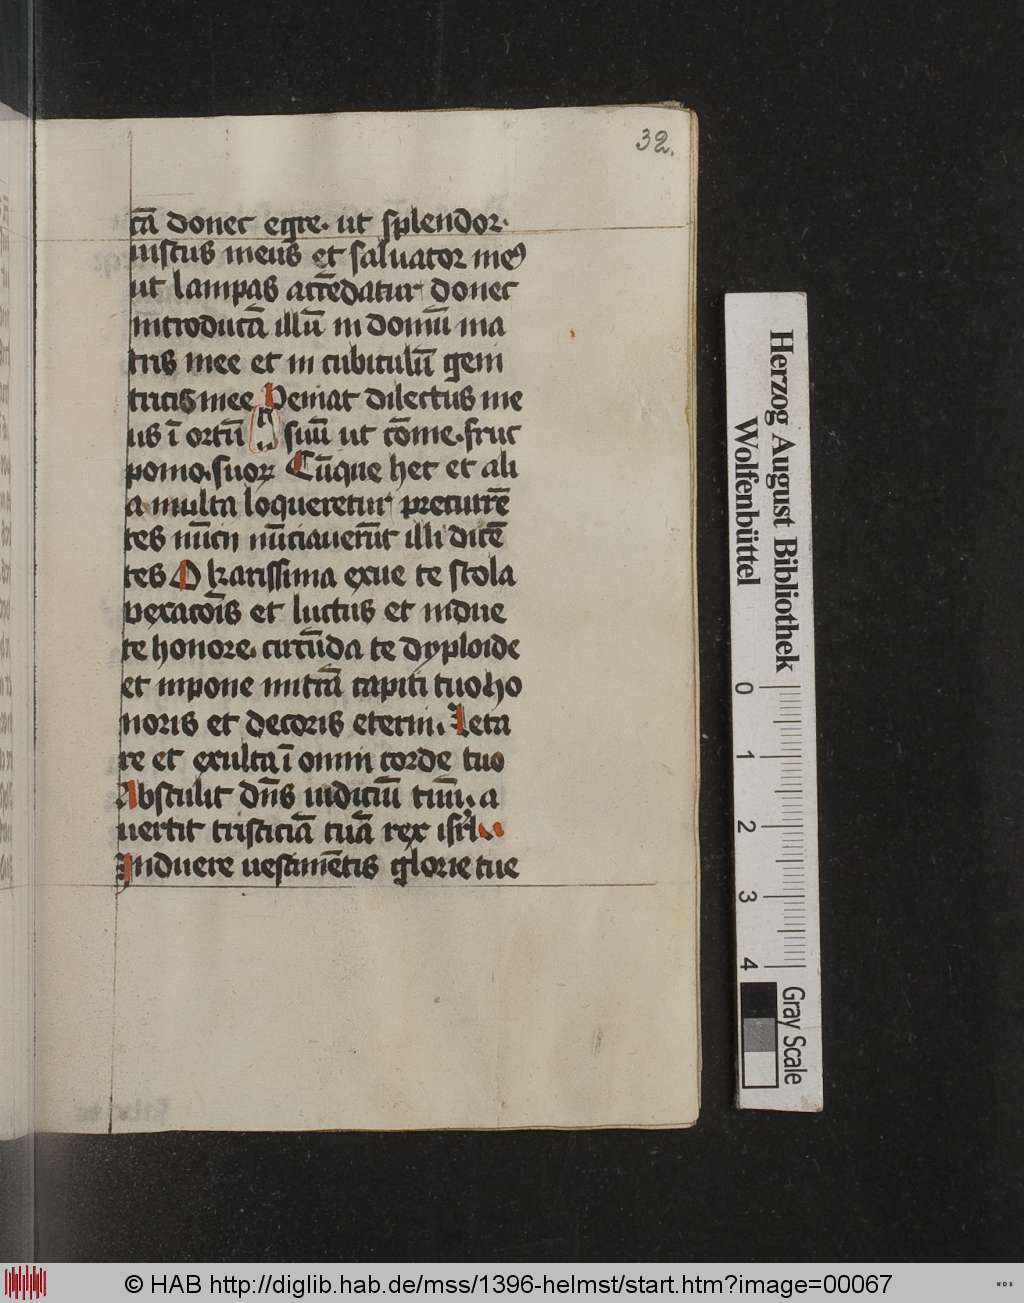 32.
cā donec egre. ut splendor.
iustus meus et saluator meꝰ
ut lampas accēdatur donec
introducā illū in domū ma
tris mee et in cubiculū geni
tricis mee Veniat dilectus me
us ī ortū suū ut cōme. fruc
pomo. suoꝝ Cūque hec et ali
a multa loqueretur precurrē
tes nūcij nūciauerūt illi dicē
tes O karissima exue te stola
vexacoīs et luctus et indue
te honore. circūda te dyploide
et inpone mitrā capiti tuo ho
noris et decoris eterni. Leta
re et exulta ī omni corde tuo
Abstulit dn̄s iudiciū tuū. a
uertit tristiciā tuā rex isrl.
Induere uestimētis glorie tue
Herzog August Bibliothek
Wolfenbüttel
0 1 2 3 4
Gray Scale
© HAB http://diglib.hab.de/mss/1396-helmst/start.htm?image=00067